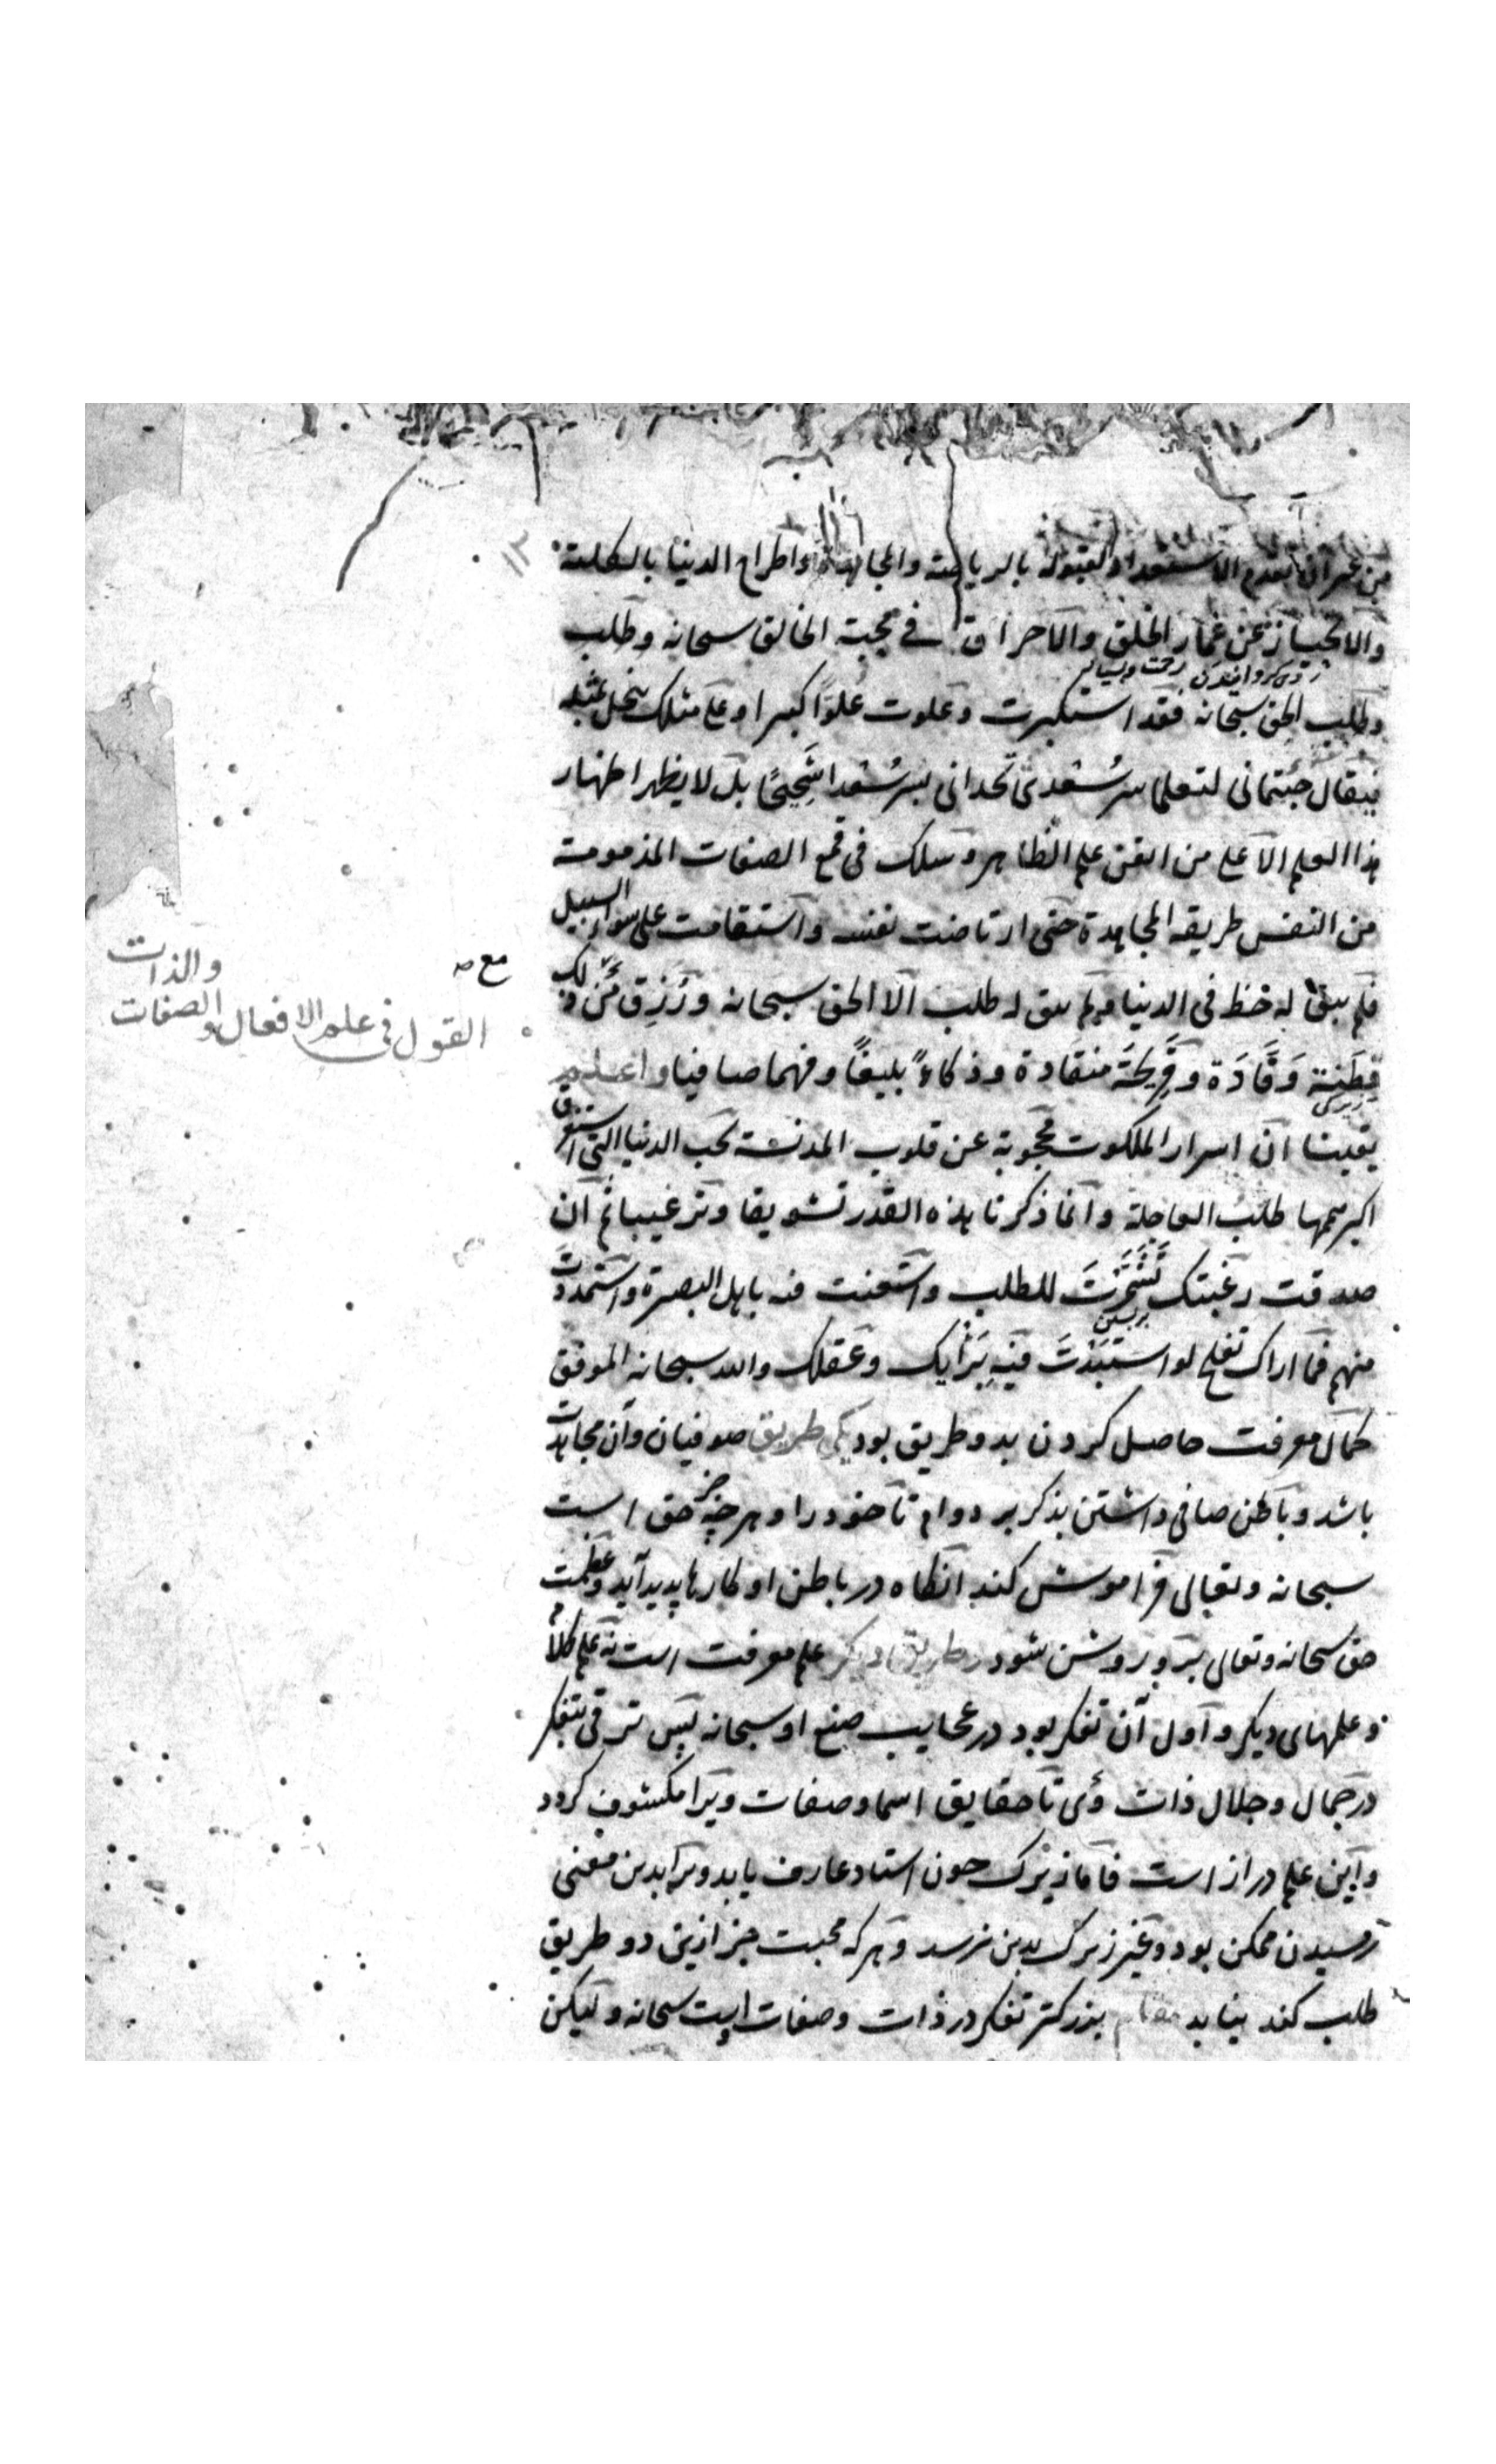 من غير ان تقدم الاستعداد لقبوله بالرياضة والمجاهدة واطراح الدنيا بالكلية
والانحياز عن غمار الخلق والاستغراق في محبة الخالق سبحانه وطلب
وطلب الحق سبحانه فقد استكبرت وعلوت علوا كبيرا وعلى مثلك يبخل بمثله
فيقال جئتماني لتعلما سر سعدى تجداني بسر سعدى شحيحا بل لا يظهر اظهار
هذا العلم الا على من اتقن علم الظاهر وسلك في قمع الصفات المذمومة
من النفس طريقة المجاهدة حتى ارتاضت نفسه واستقامت على سواء السبيل
فلم يبق له حظ في الدنيا ولم يبق له طلب الا الحق سبحانه ورزق من ذلك
فطنة وقادة وقريحة منقادة وذكاء بليغا وفهما صافيا واعلم
يقينا ان اسرار الملكوت محجوبة عن قلوب المدنسة بحب الدنيا التي استغرق
اكبر همها طلب العاجلة وانما ذكرنا هذه القدر تشويقا وترغيبا ثم ان
صدقت رغبتك تشمرت للطلب واستعنت فيه باهل البصيرة واستمددت
منهم فما اراك تفلح لو استبددت فيه برأيك وعقلك والله سبحانه الموفق
كمال معرفت حاصل كردن بدو طريق بود يكي طريق صوفيان وآن مجاهدت
باشد وباطن صافي داشتن بذكر بر دوام تا خود را وهر چه جز حق است
سبحانه وتعالى فراموش كند آنكاه در باطن او كارها پديد آيد وعظمت
حق سبحانه وتعالى برو روشن شود طريق ديكر علم معرفت است نه علم كلام
وعلمهاى ديكر واول آن تفكر بود در عجايب صنع او سبحانه پس ترقى بتفكر
در جمال وجلال ذات وى تا حقايق اسما وصفات ويرا مكشوف كردد
واين علم دراز است فاما زيرك چون استاد عارف يابد ويرا بدين معنى
رسيدن ممكن بود وغير زيرك بدين نرسد وهر كه محبت جز ازين دو طريق
طلب كند نيابد مقام بزركتر تفكر در ذات وصفات اوست سبحانه وليكن
مع صـ
والذات
القول في علم الافعال والصفات
١٢